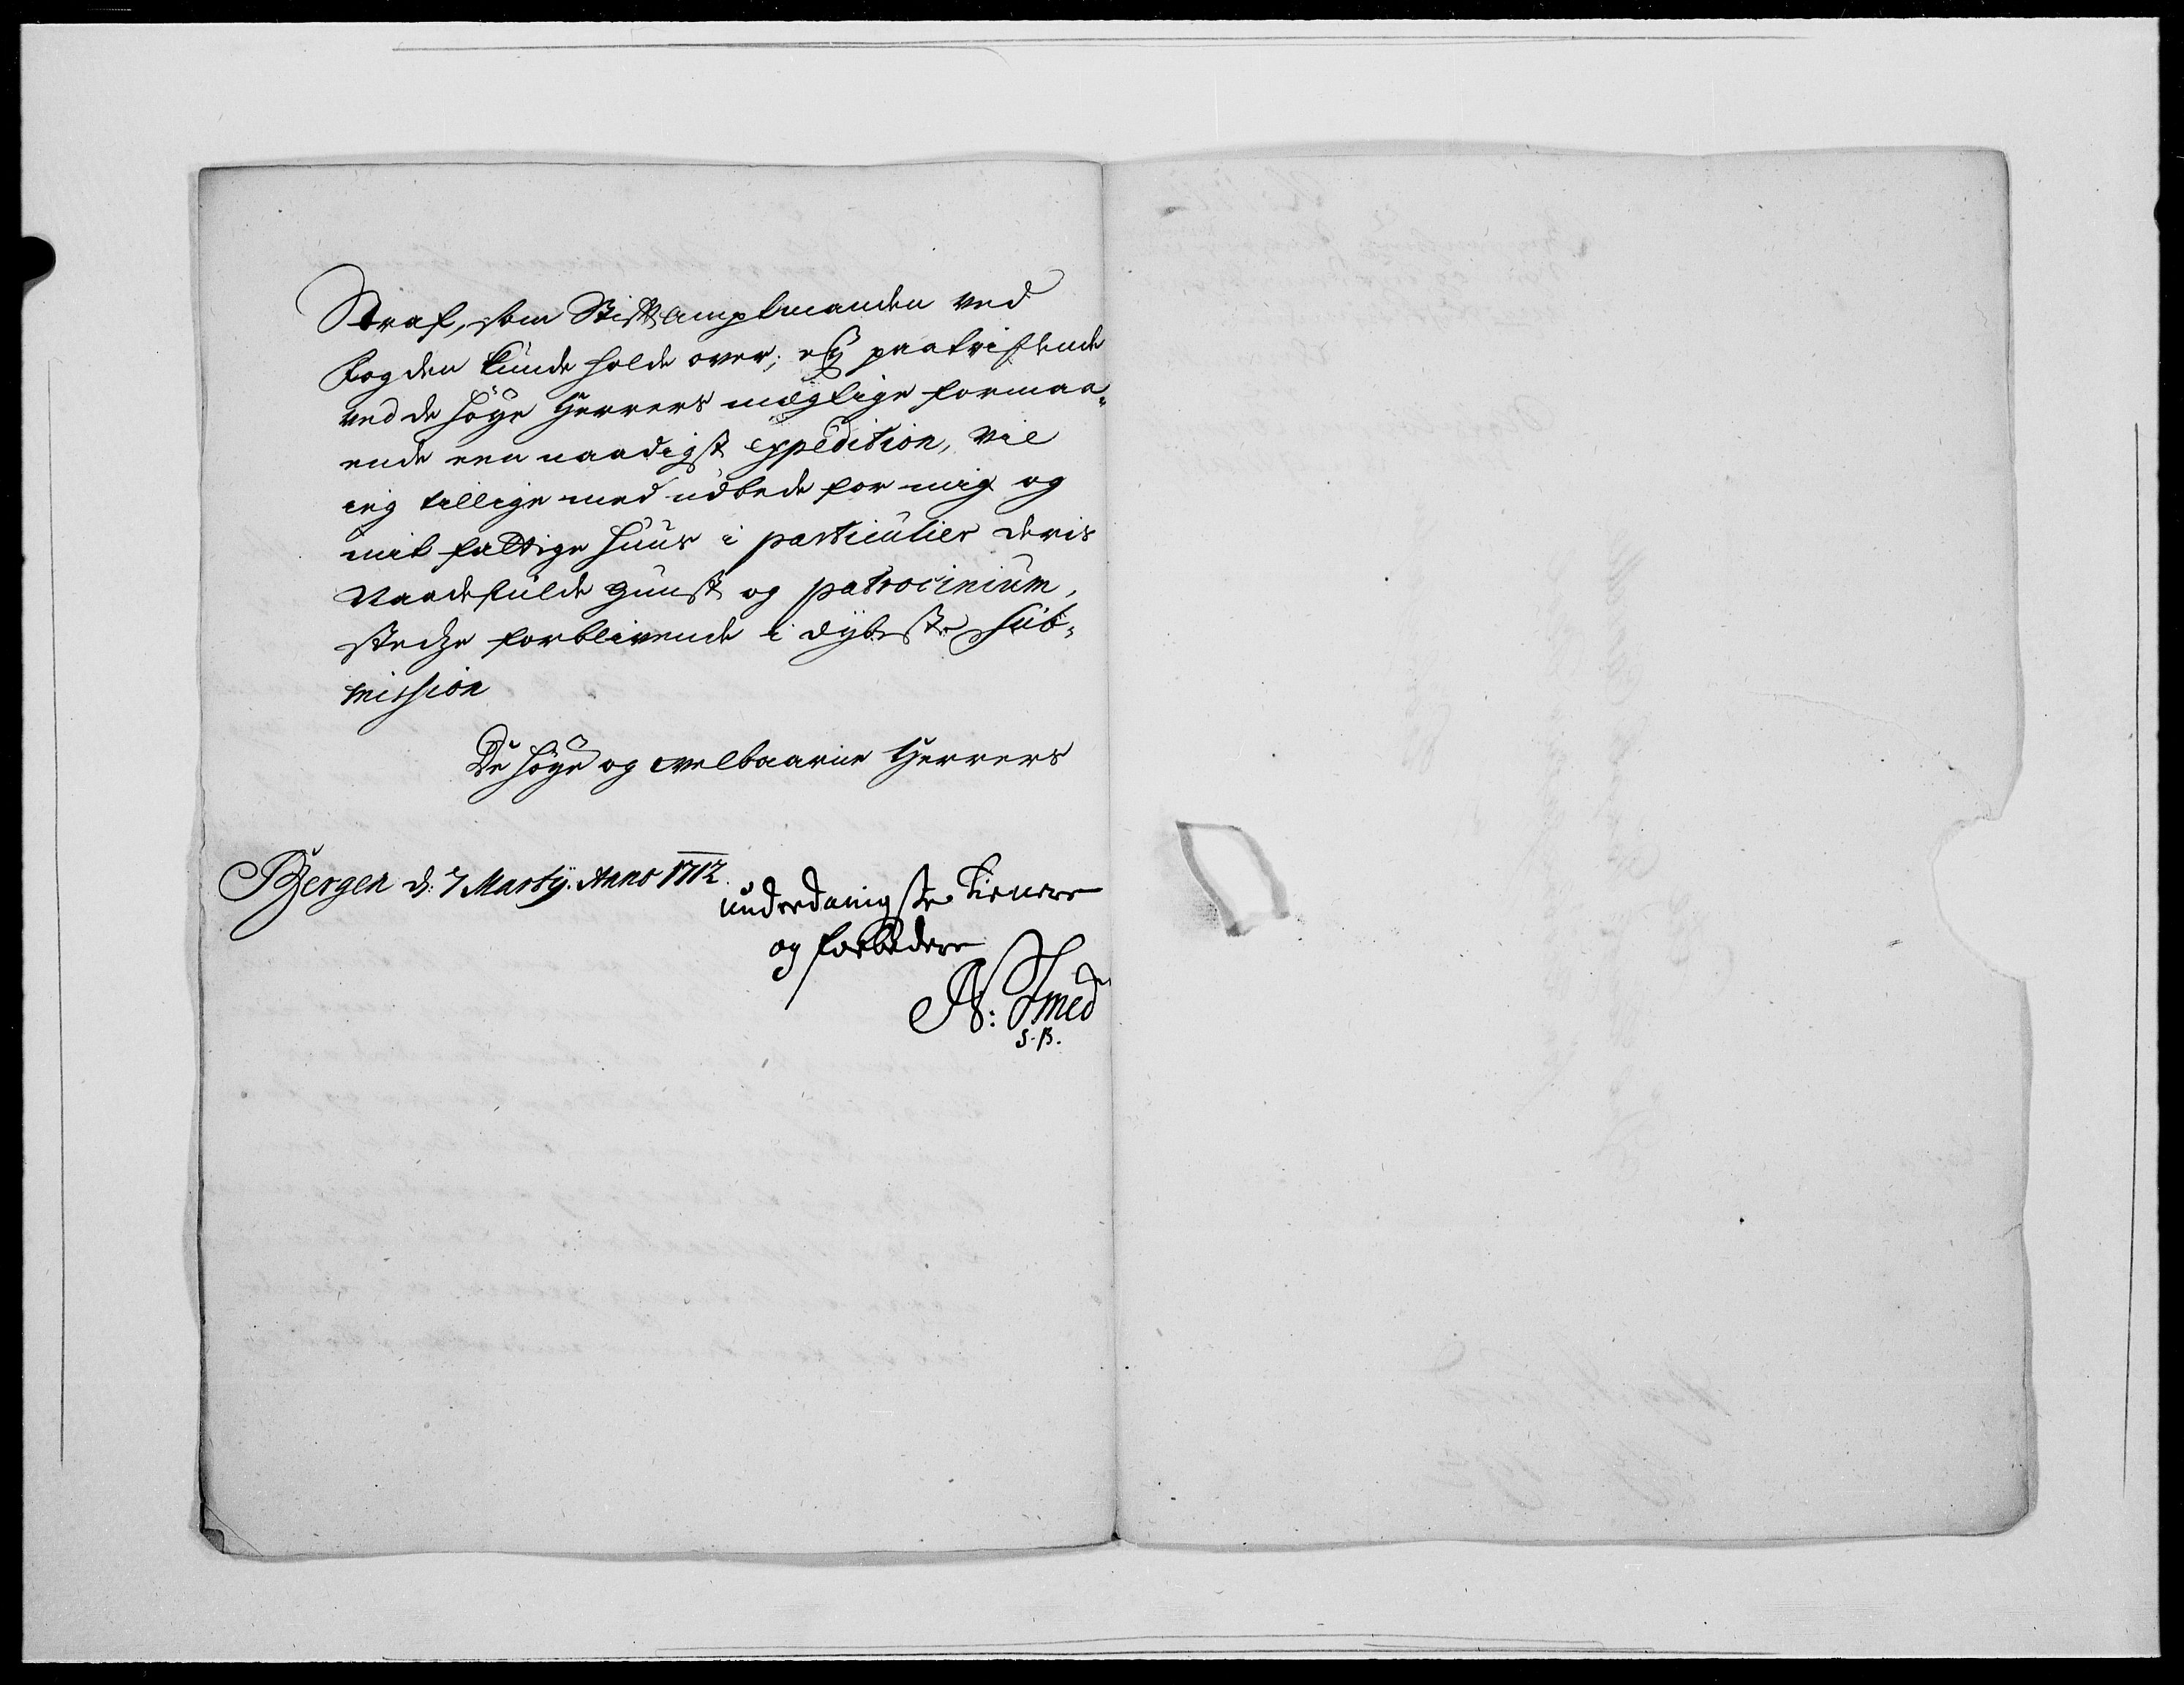 Straf, som Stiftamptmanden ved
Fogden kunde holde over; Og paatvilende
ved de höye Herrers megtige formaa-
ende een naadigst expedition, vil
ieg tillige med udbede for mig og
mit fattige huus i particulier deris
Naadefulde gunst og patrocinium,
stedze forblivende i dybeste sub-
mission
De höye og velbaarne Herrers
Bergen d: 7 Martij. Anno 1712.
underdanigste tienere
og forbedere
N: Smed
S. B.